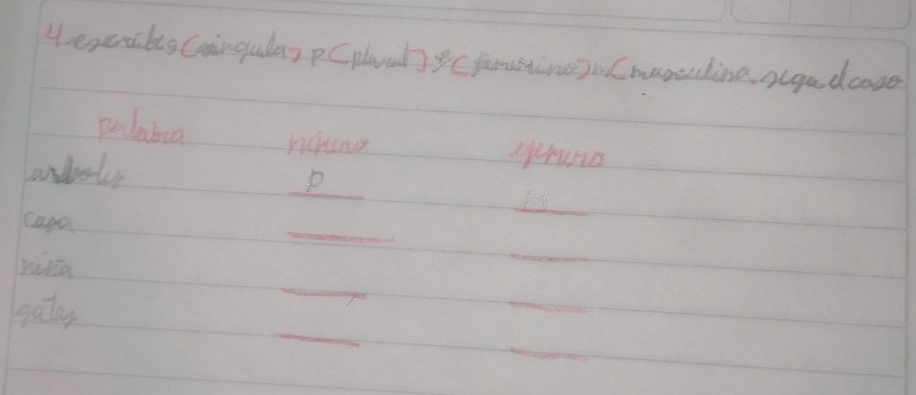 4 escribe s (singular) p (plural) f (femenino) m (masculino. segú el caso
palabra número género
arboles p m
casa
niña
gatas